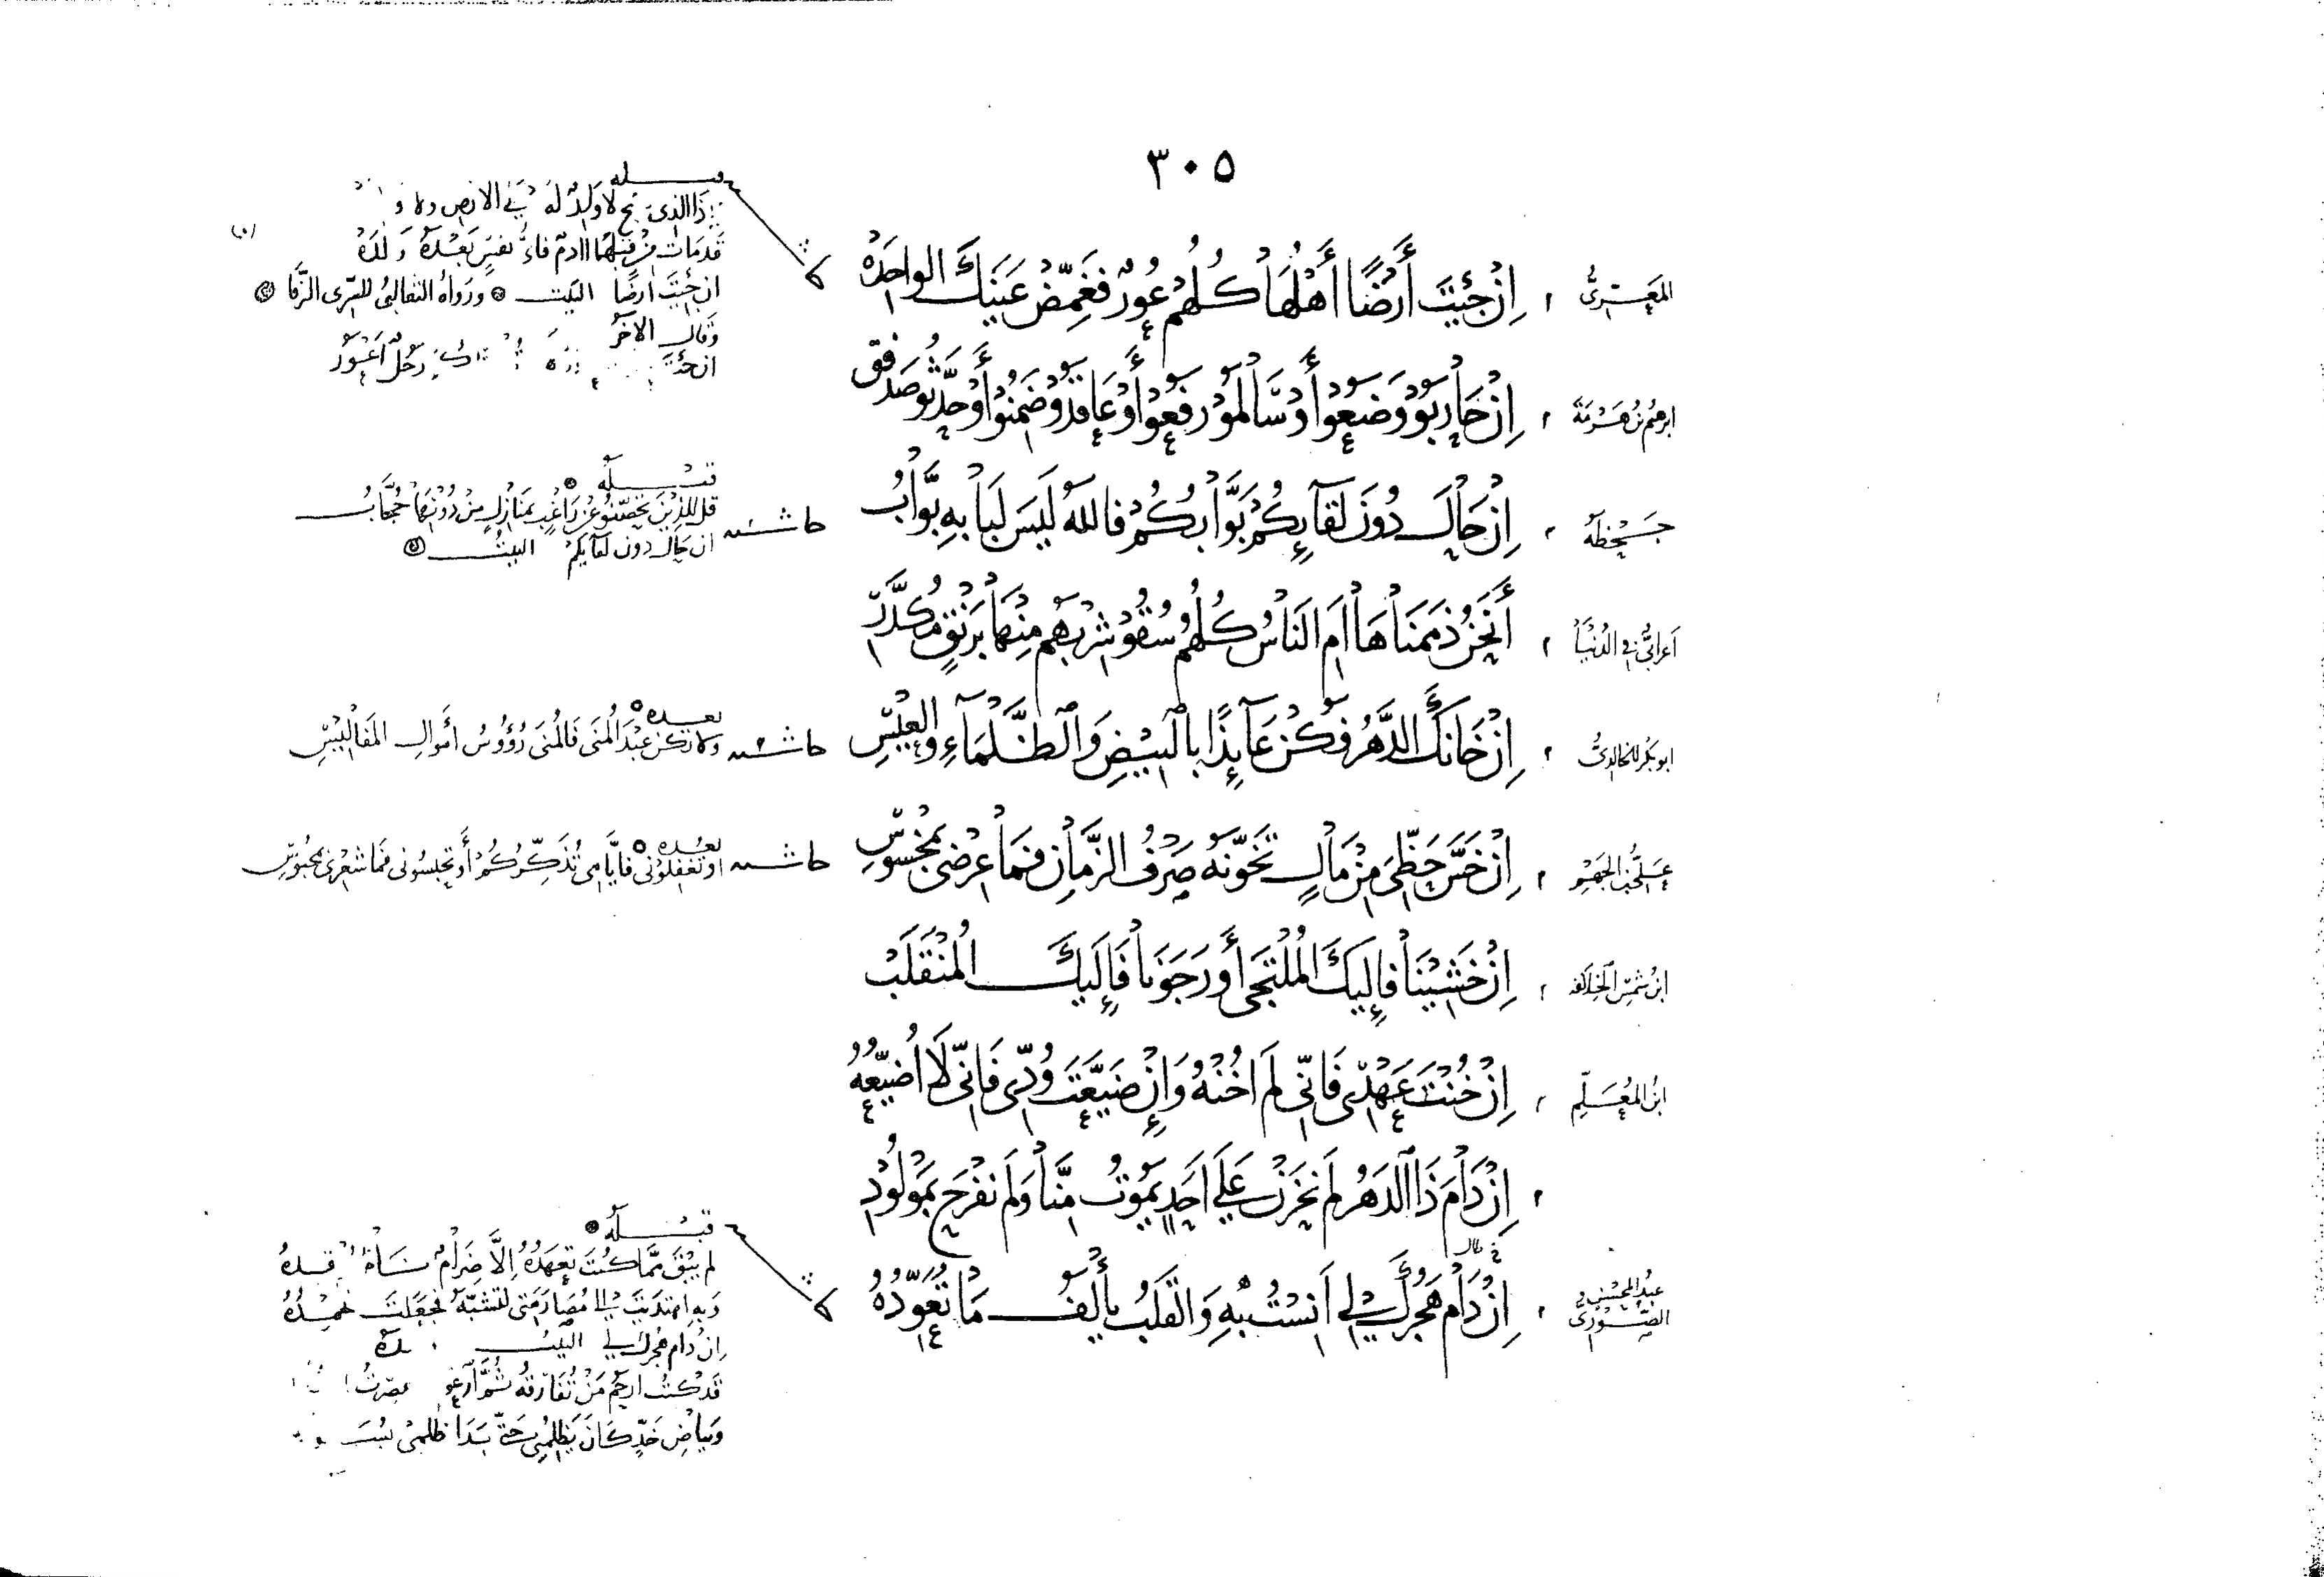 ٣٠٥
المعري
إِنْ جِئْتَ أَرْضًا أَهْلُهَا كُلُّهُمْ عُورٌ فَغَمِّضْ عَيْنَكَ الواحِدَهْ
ابرهيم بن هرمة
إِنْ حَارَبُوْا وَضَعُوْا أَوْ سَالَمُوْا رَفَعُوْا أَوْ عَاقَدُوْا ضَمِنُوْا أَوْ حَدَّثُوْا صَدَقُوا
جحظة
إِنْ حَالَ دُوْنَ لِقَآئِكُمْ بَوَّابُكُمْ فَاللهُ لَيْسَ لِبَابِهِ بَوَّابُ
أعرابي في الدنيا
أَنَحْنُ ذَمَمْنَاهَا أَمِ النَّاسُ كُلُّهُمْ سُقُوْا شِرْبَهُمْ مِنْهَا بِرَنْقٍ مُكَدَّرِ
ابو بكر الخالدي
إِنْ خَانَكَ الدَّهْرُ فَكُنْ عَآئِذًا بِالْبِيْضِ وَالظَّلْمَآءِ وَالْعِيْسِ
علي بن الجهم
إِنْ خَسَّ حَظِّيَ مِنْ مَالٍ تَخَوَّنَهُ صَرْفُ الزَّمَانِ فَمَا عِرْضِي بِمَخْسُوْسِ
ابن شمس الخلافة
إِنْ خَشِيْنَا فَإِلَيْكَ الْمُلْتَجَى أَوْ رَجَوْنَا فَإِلَيْكَ الْمُنْقَلَبْ
ابن المعلم
إِنْ خُنْتَ عَهْدِي فَإِنِّي لَمْ أَخُنْهُ وَإِنْ ضَيَّعْتَ وُدِّي فَإِنِّي لَا أُضَيِّعُهُ
إِنْ دَامَ ذَا الدَّهْرُ لَمْ نَحْزَنْ عَلَى أَحَدٍ يَمُوْتُ مِنَّا وَلَمْ نَفْرَحْ بِمَوْلُوْدِ
عبد المحسن الصوري
إِنْ دَامَ هَجْرُكَ لِي أَنِسْتُ بِهِ وَالْقَلْبُ يَأْلَفُ مَا تُعَوِّدُهُ
قبله
لا وَلَدٌ لَهُ في الارض ولا
قد مات من قبلها آدم فأي نفس بعده والده
ان جئت أرضا البيت ورواه الثعالبي للسري الرفا
وقال الآخر
رجل أعور
قبله
حاشية
قل للذين تحصنوا عن راغب بمنازل من دونها حجاب
ان حال دون لقائكم البيت
بعده
حاشية
ولا تكن عبد المنى فالمنى رؤوس أموال المفاليس
بعده
حاشية
او تغفلوني فأيامي تذكركم أو تحبسوني فما شعري بمحبوس
قبله
لم يبق مما كنت تعهده إلا ضرام
وبه اهتديت الى مصارمتي لتشبه فجعلت تخمده
إن دام هجرك لي البيت
قد كنت ارحم من تفارقه
وبياض خد كان يظلمني حتى بدا ظلمي